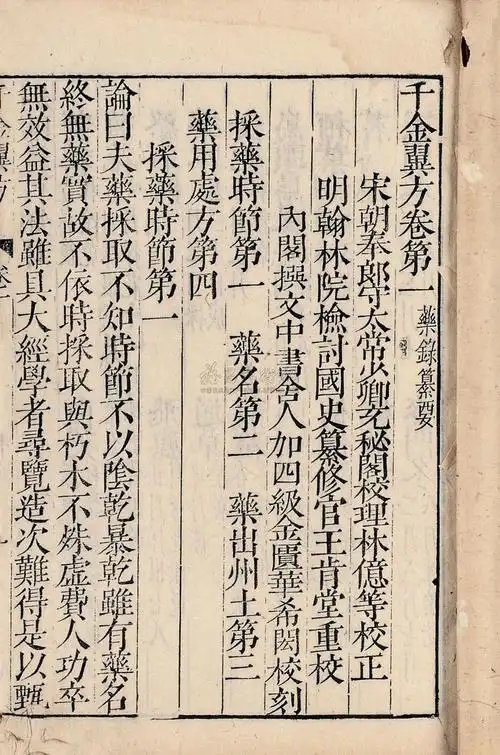 千金翼方卷第一 藥錄纂要
宋朝奉郎守太常少卿充秘閣校理林億等校正
明翰林院檢討國史纂修官王肯堂重校
內閣撰文中書舍人加四級金匱華希閎校刻
採藥時節第一 藥名第二 藥出州土第三
藥用處方第四
採藥時節第一
論曰夫藥採取不知時節不以陰乾暴乾雖有藥名
終無藥實故不依時採取與朽木不殊虛費人功卒
無效益其法雖具大經學者尋覽造次難得是以甄